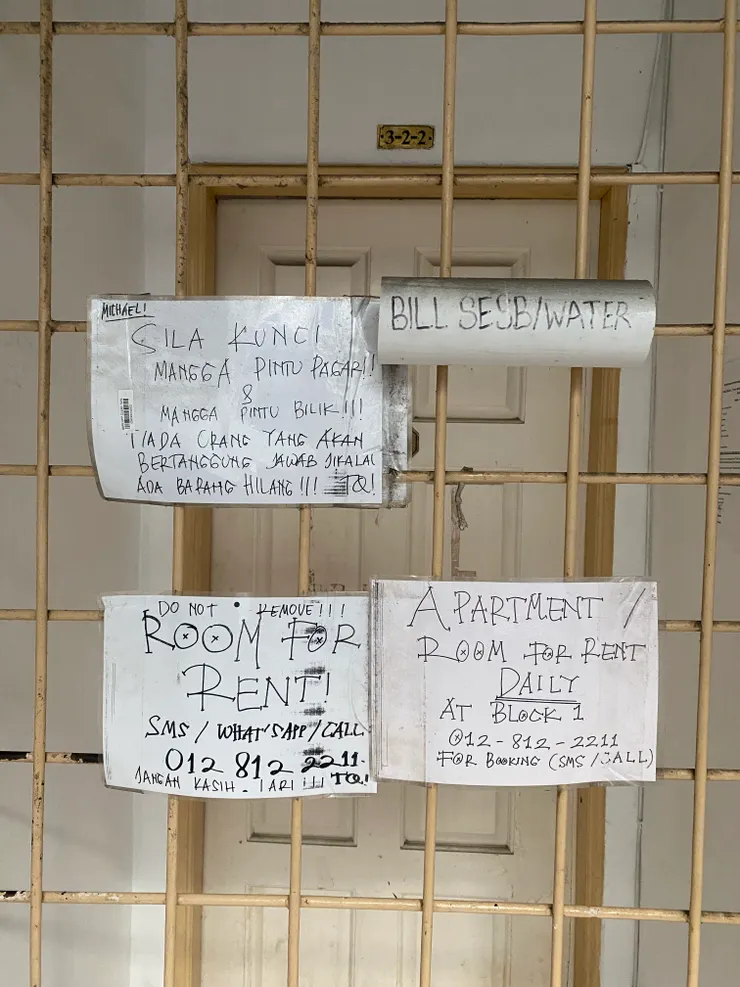 3-2-2
MICHAEL!
SILA KUNCI
MANGGA PINTU PAGAR!!
&
MANGGA PINTU BILIK!!!
TIADA ORANG YANG AKAN
BERTANGGUNG JAWAB JIKALAU
ADA BARANG HILANG!!! TQ!
BILL SESB/WATER
DO NOT • REMOVE!!!
ROOM FOR
RENT!
SMS / WHAT'SAPP / CALL
012 812 2211
JANGAN KASIH . TARI !!! TQ!
APARTMENT /
ROOM FOR RENT
DAILY
AT BLOCK 1
012-812-2211
FOR BOOKING (SMS / CALL)